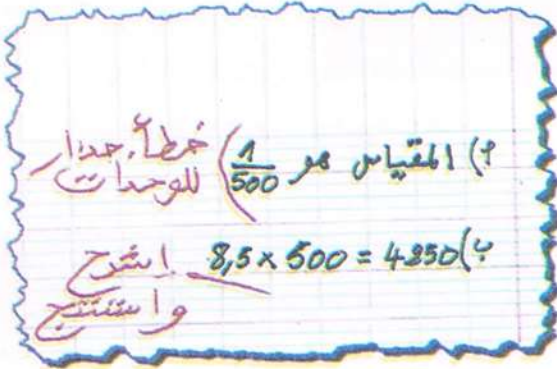 أ) المقياس هو 1/500
خطأ. حذار
للوحدات
ب) 8,5 × 500 = 4250
إشرح
واستنتج